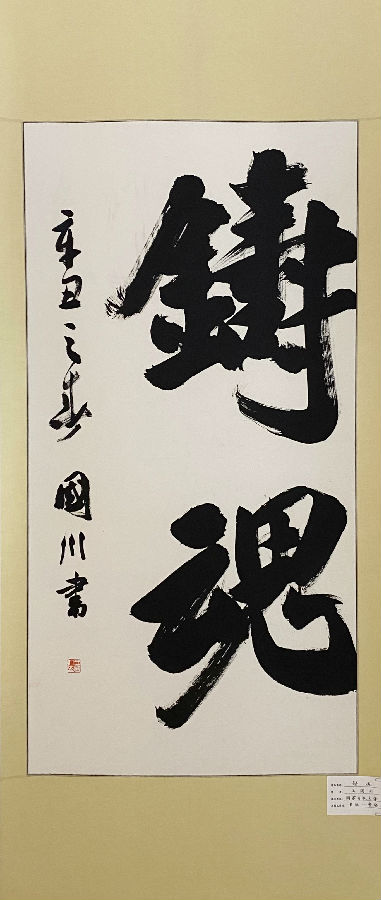 鑄魂
辛丑之春 國川書